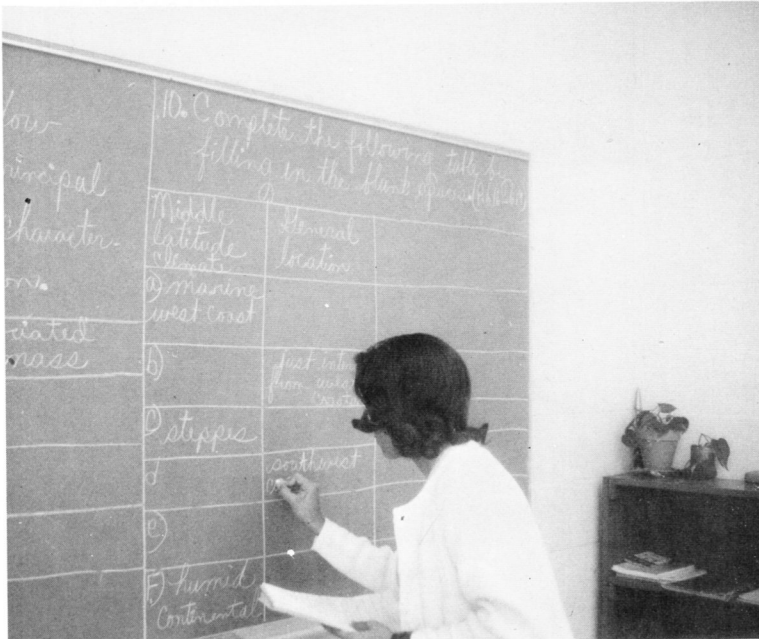 low
principal
character-
on.
ciated
mass
10. Complete the following table by
filling in the blank spaces
Middle
latitude
climate
General
location
a) marine
west coast
b)
Just
from
coast
c) steppes
d
southwest
e)
F) humid
Continental